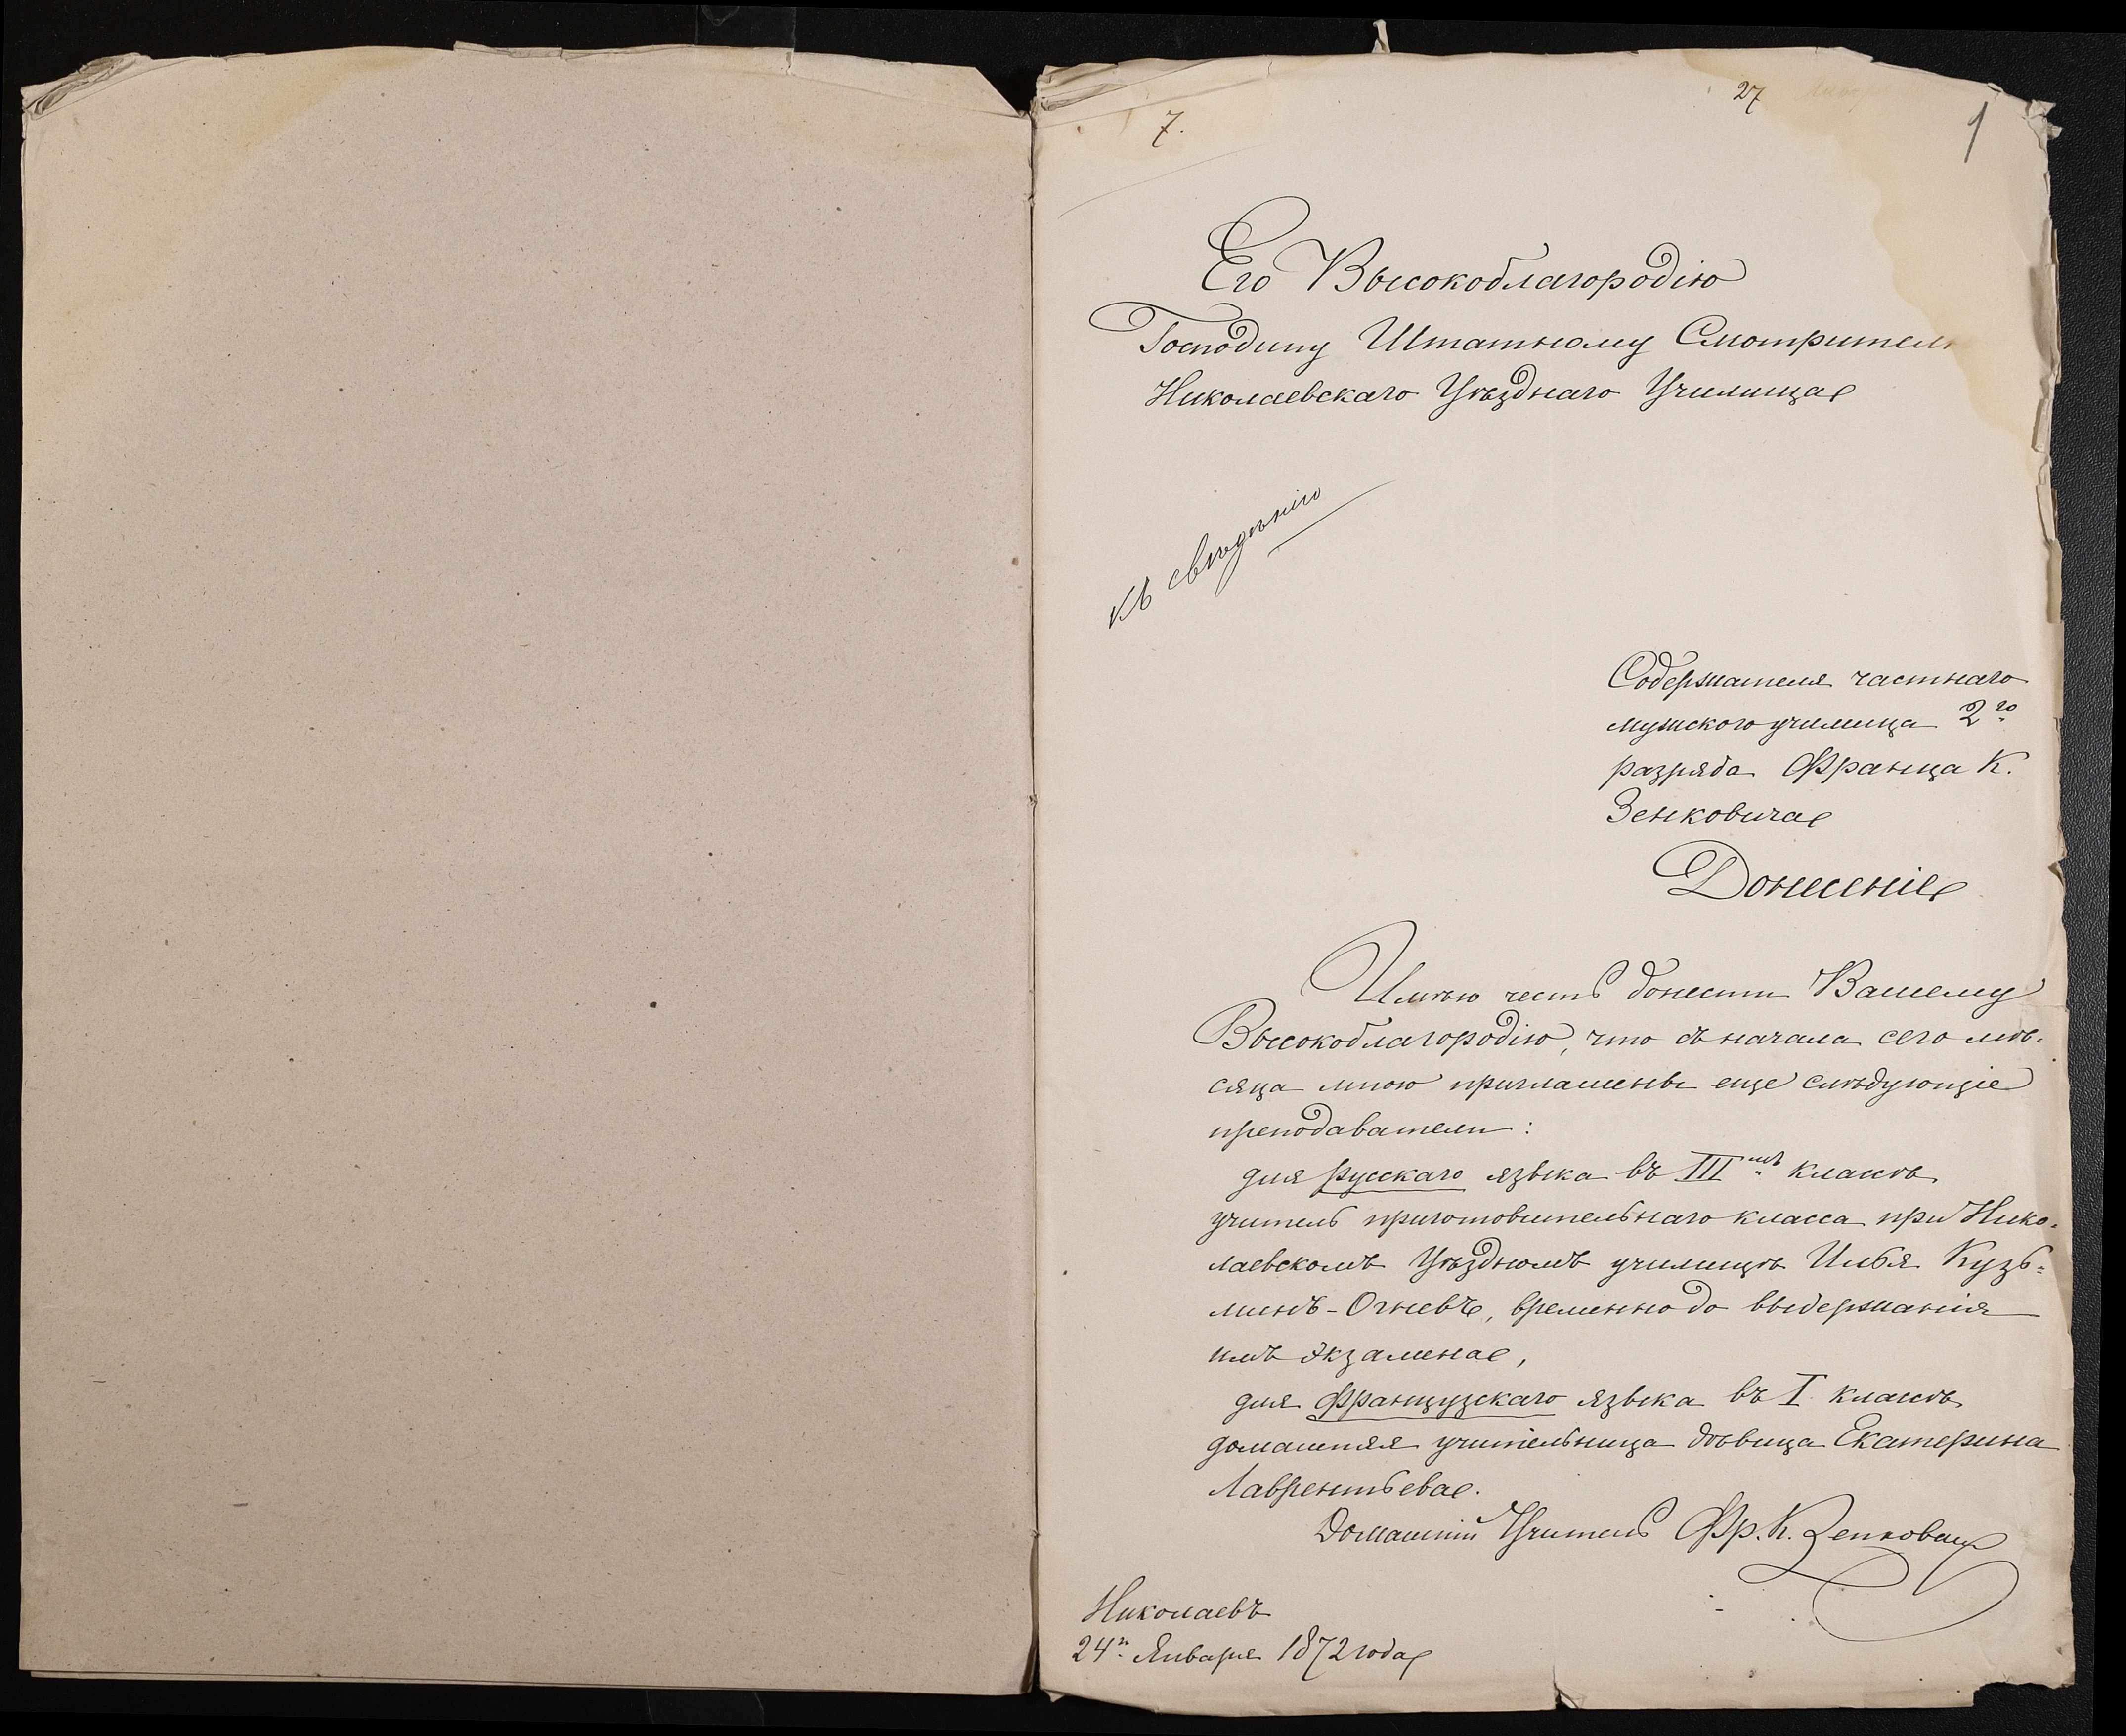 7.
27
1
Его Высокоблагородію
Господину Штатному Смотрителю
Николаевскаго Уѣзднаго Училища
Къ свѣденію
Содержателя частнаго
мужскаго училища 2го
разряда Франца К.
Зенковича
Донесеніе
Имѣю честь донести Вашему
Высокоблагородію, что съ начала сего мѣ-
сяца мною приглашены еще слѣдующіе
преподаватели:
для русскаго языка въ IIIмъ классѣ
учитель приготовительнаго класса при Нико-
лаевскомъ Уѣздномъ училищѣ Илья Кузь-
минъ-Огневъ, временно до выдержанія
имъ экзамена,
для французскаго языка въ I классѣ
домашняя учительница дѣвица Екатерина
Лаврентьева.
Домашній Учитель Фр. К. Зенковичъ
Николаевъ
24го Января 1872 года